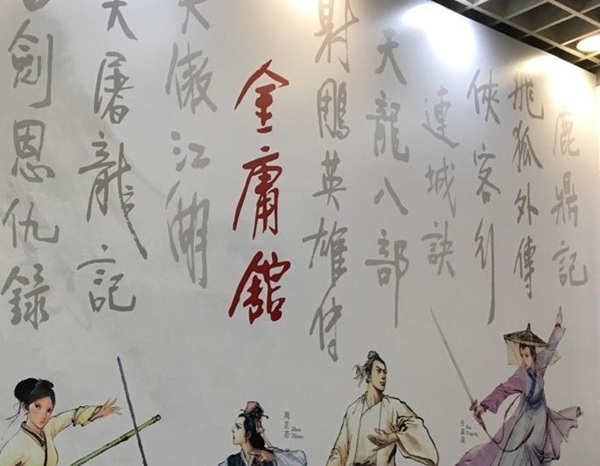 鹿鼎記
飛狐外傳
俠客行
連城訣
天龍八部
射鵰英雄傳
金庸館
傲江湖
天屠龍記
劍恩仇錄
周芷若
Zhou Zhiruo